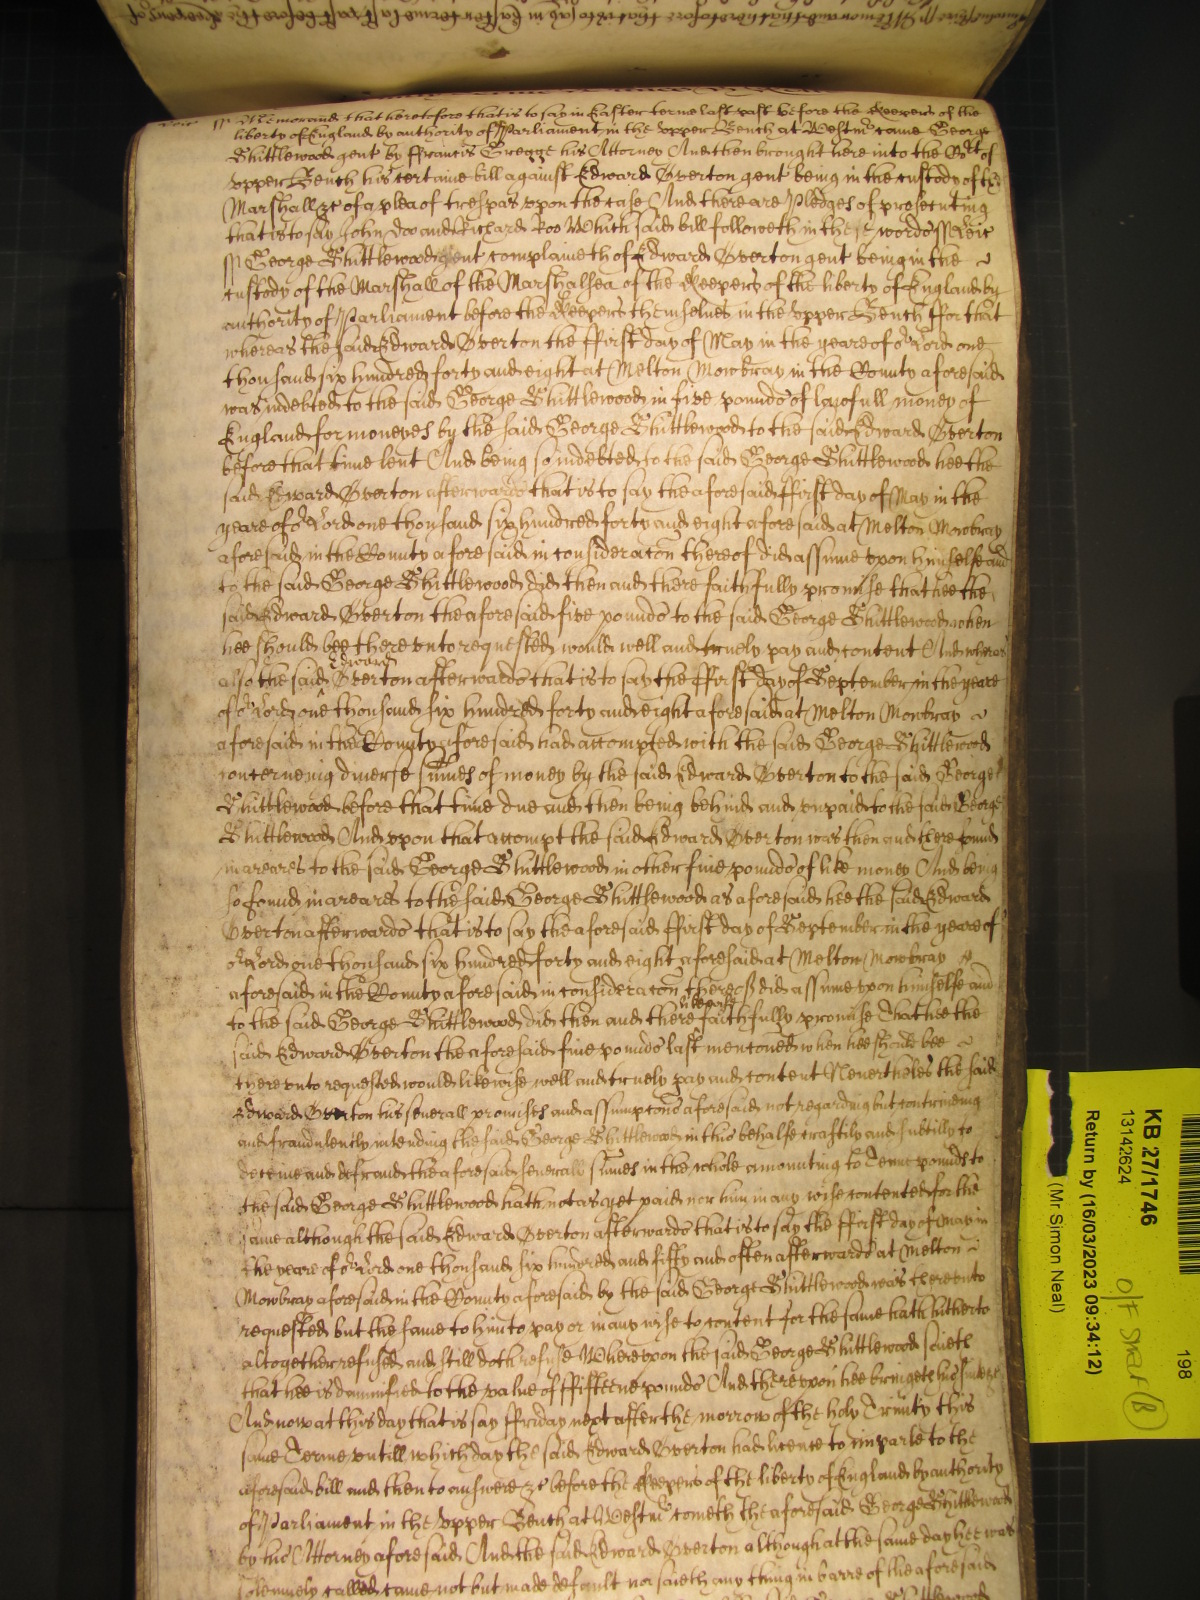 Leic ss Memorand that heretofore that is to say in Easter terme last past before the Keepers of the
liberty of England by authority of Parliament in the upper Bench at Westmr came George
Shittlewood gent by Francis Gregge his Attorney And then brought here into the Court of
upper Bench his certaine bill against Edward Overton gent being in the custody of the
Marshall &c of a plea of trespas upon the case And there are pledges of prosecuting
that is to say John Doo and Richard Roo Which said bill followeth in these words ss Leic
ss George Shittlewood gent complaineth of Edward Overton gent being in the
custody of the Marshall of the Marshalsea of the Keepers of the liberty of England by
authority of Parliament before the Keepers themselves in the upper Bench ffor that
whereas the said Edward Overton the ffirst day of May in the yeare of or Lord one
thousand six hundred forty and eight at Melton Mowbray in the County aforesaid
was indebted to the said George Shittlewood in five pounds of lawfull money of
England for moneyes by the said George Shittlewood to the said Edward Overton
before that time lent And being so indebted to the said George Shittlewood hee the
said Edward Overton afterwards that is to say the aforesaid ffirst day of May in the
yeare of or Lord one thousand six hundred forty and eight aforesaid at Melton Mowbray
aforesaid in the County aforesaid in consideracon thereof did assume upon himselfe and
to the said George Shittlewood did then and there faithfully promise that hee the
said Edward Overton the aforesaid five pounds to the said George Shittlewood when
hee should bee thereunto requested would well and truely pay and content And whereas
also the said Edward Overton afterwards that is to say the ffirst day of September in the yeare
of or Lord one thousand six hundred forty and eight aforesaid at Melton Mowbray
aforesaid in the County aforesaid had accompted with the said George Shittlewood
concerneing diverse sumes of money by the said Edward Overton to the said George
Shittlewood before that time due and then being behind and unpaid to the said George
Shittlewood And upon that accompt the said Edward Overton was then and there found
in areares to the said George Shittlewood in other five pounds of like money And being
so found in areares to the said George Shittlewood as aforesaid hee the said Edward
Overton afterwards that is to say the aforesaid ffirst day of September in the yeare of
or Lord one thousand six hundred forty and eight aforesaid at Melton Mowbray
aforesaid in the County aforesaid in consideracon thereof did assume upon himselfe and
to the said George Shittlewood did then and there likewise faithfully promise That hee the
said Edward Overton the aforesaid five pounds last mentoned when hee should bee
thereunto requested would likewise well and truely pay and content Nevertheles the said
Edward Overton his severall promises and assumptons aforesaid not regarding but contriveing
and fraudulently intending the said George Shittlewood in this behalfe craftily and subtilly to
deceive and defraud the aforesaid severall sumes in the whole amounting to Tenne pounds to
the said George Shittlewood hath not as yet paid nor him in any wise contented for the
same although the said Edward Overton afterwards that is to say the ffirst day of May in
the yeare of or Lord one thousand six hundred and fifty and often afterwards at Melton
Mowbray aforesaid in the County aforesaid by the said George Shittlewood was thereunto
requested but the same to him to pay or in any wise to content for the same hath hitherto
altogether refused and still doth refuse Whereupon the said George Shittlewood saieth
that hee is damnified to the value of ffifteene pounds And thereupon hee bringeth his suite &c
And now at this day that is say ffriday next after the morrow of the holy Trinity this
same Terme untill which day the said Edward Overton had licence to imparle to the
aforesaid bill and then to answere &c before the Keepers of the liberty of England by authority
of Parliament in the upper Bench at Westmr cometh the aforesaid George Shittlewood
by his Attorney aforesaid And the said Edward Overton although at the same day hee was
solemnely called came not but made default nor saieth any thing in barre of the aforesaid
KB 27/1746
13142624
Return by (16/03/2023 09:34:12)
(Mr Simon Neal)
198